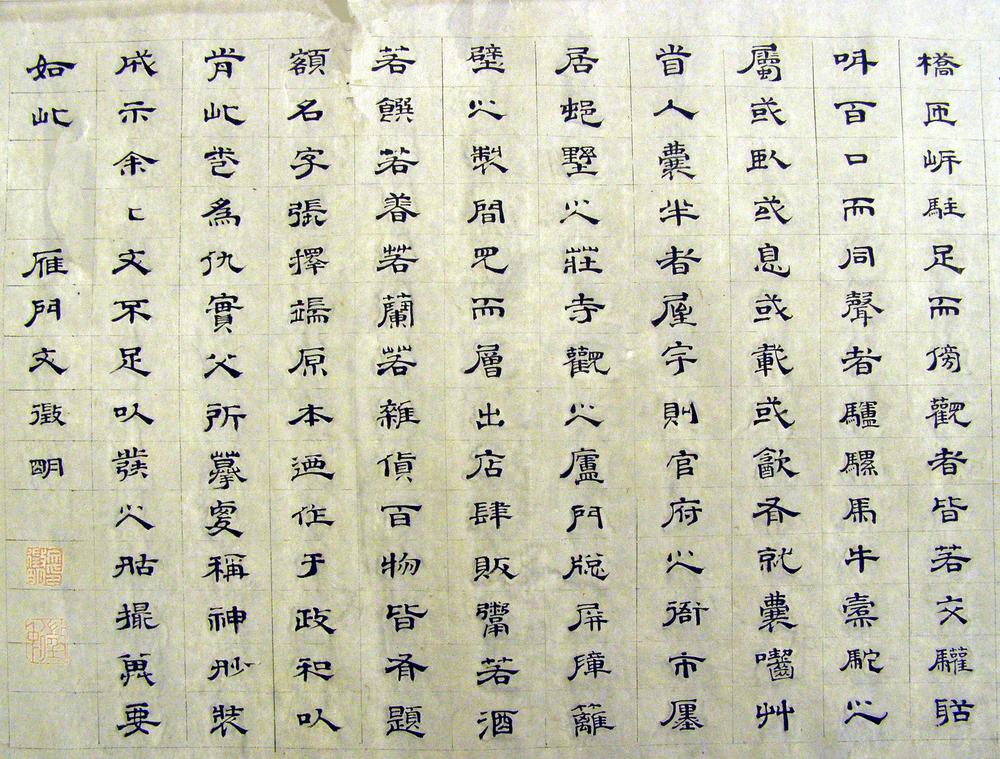 橋匝岸駐足而傍觀者皆若交驩聒
呌百口而同聲者驢騾馬牛橐駝之
屬或臥或息或載或飲有就囊嚙艸
首入囊半者屋宇則官府之衙市廛
居邨野之莊寺觀之廬門牕屏障籬
壁之製間見而層出店肆販鬻若酒
若饌若善若蘭若雜貨百物皆有題
額名字張擇端原本迺作于政和以
前此卷為仇實父所摹稱神妙裝
成示余々文不足以發之姑撮其要
如此 雁門文徵明